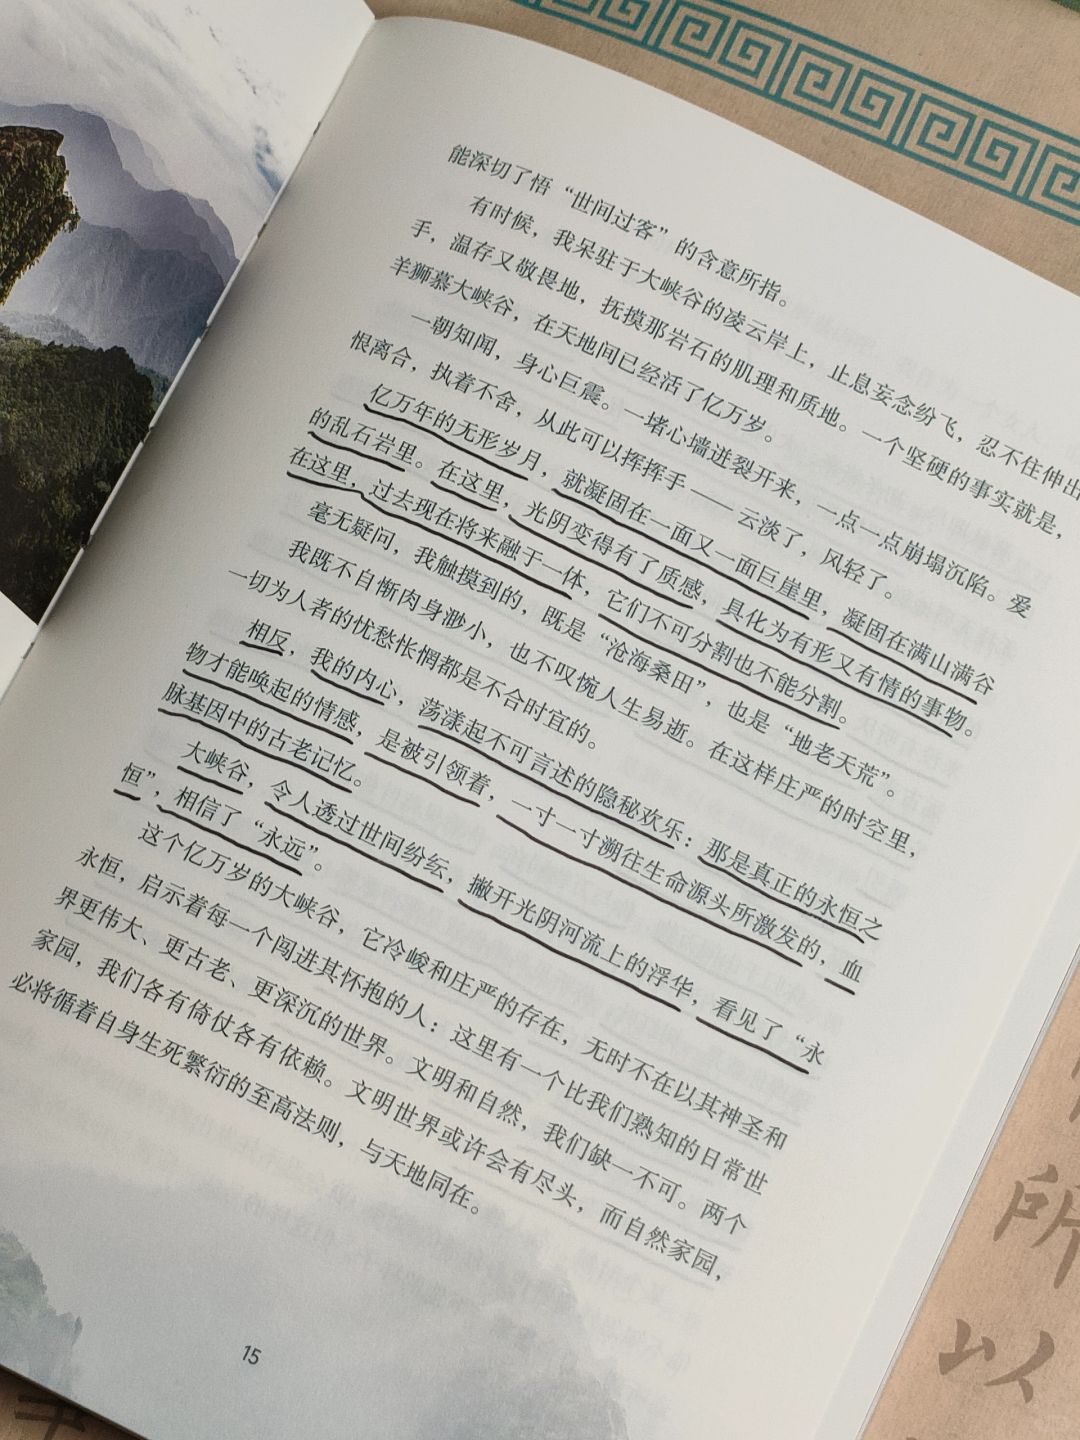 能深切了悟“世间过客”的含意所指。
有时候，我呆驻于大峡谷的凌云岸上，止息妄念纷飞，忍不住伸出
手，温存又敬畏地，抚摸那岩石的肌理和质地。一个坚硬的事实就是，
羊狮慕大峡谷，在天地间已经活了亿万岁。
一朝知闻，身心巨震。一堵心墙迸裂开来，一点一点崩塌沉陷。爱
恨离合，执着不舍，从此可以挥挥手——云淡了，风轻了。
亿万年的无形岁月，就凝固在一面又一面巨崖里，凝固在满山满谷
的乱石岩里。在这里，光阴变得有了质感，具化为有形又有情的事物。
在这里，过去现在将来融于一体，它们不可分割也不能分割。
毫无疑问，我触摸到的，既是“沧海桑田”，也是“地老天荒”。
我既不自惭肉身渺小，也不叹惋人生易逝。在这样庄严的时空里，
一切为人者的忧愁怅惘都是不合时宜的。
相反，我的内心，荡漾起不可言述的隐秘欢乐：那是真正的永恒之
物才能唤起的情感，是被引领着，一寸一寸溯往生命源头所激发的，血
脉基因中的古老记忆。
大峡谷，令人透过世间纷纭，撇开光阴河流上的浮华，看见了“永
恒”，相信了“永远”。
这个亿万岁的大峡谷，它冷峻和庄严的存在，无时不在以其神圣和
永恒，启示着每一个闯进其怀抱的人：这里有一个比我们熟知的日常世
界更伟大、更古老、更深沉的世界。文明和自然，我们缺一不可。两个
家园，我们各有倚仗各有依赖。文明世界或许会有尽头，而自然家园，
必将循着自身生死繁衍的至高法则，与天地同在。
15
所
以